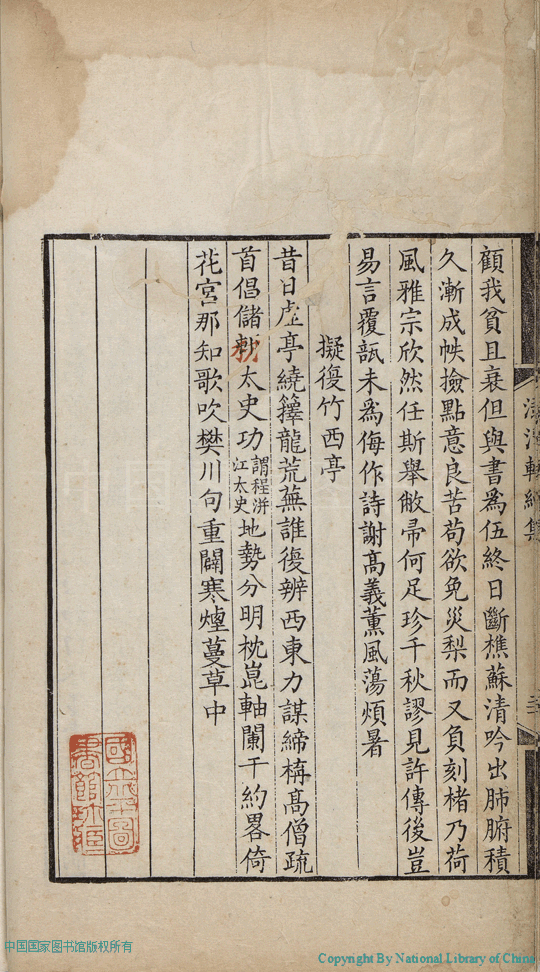 顧我貧且衰但與書爲伍終日斷樵蘇清吟出肺腑積
久漸成帙撿點意良苦苟欲免災梨而又負刻楮乃荷
風雅宗欣然任斯舉敝帚何足珍千秋謬見許傳後豈
易言覆瓿未爲侮作詩謝高義薰風蕩煩暑
擬復竹西亭
昔日虛亭繞籜龍荒蕪誰復辨西東力謀締構高僧疏
首倡儲太史功謂程洴江太史地勢分明枕崑軸闌干約畧倚
花宮那知歌吹樊川句重闢寒煙蔓草中
國立北平圖書館珍藏
中国国家图书馆版权所有
Copyright By National Library of China